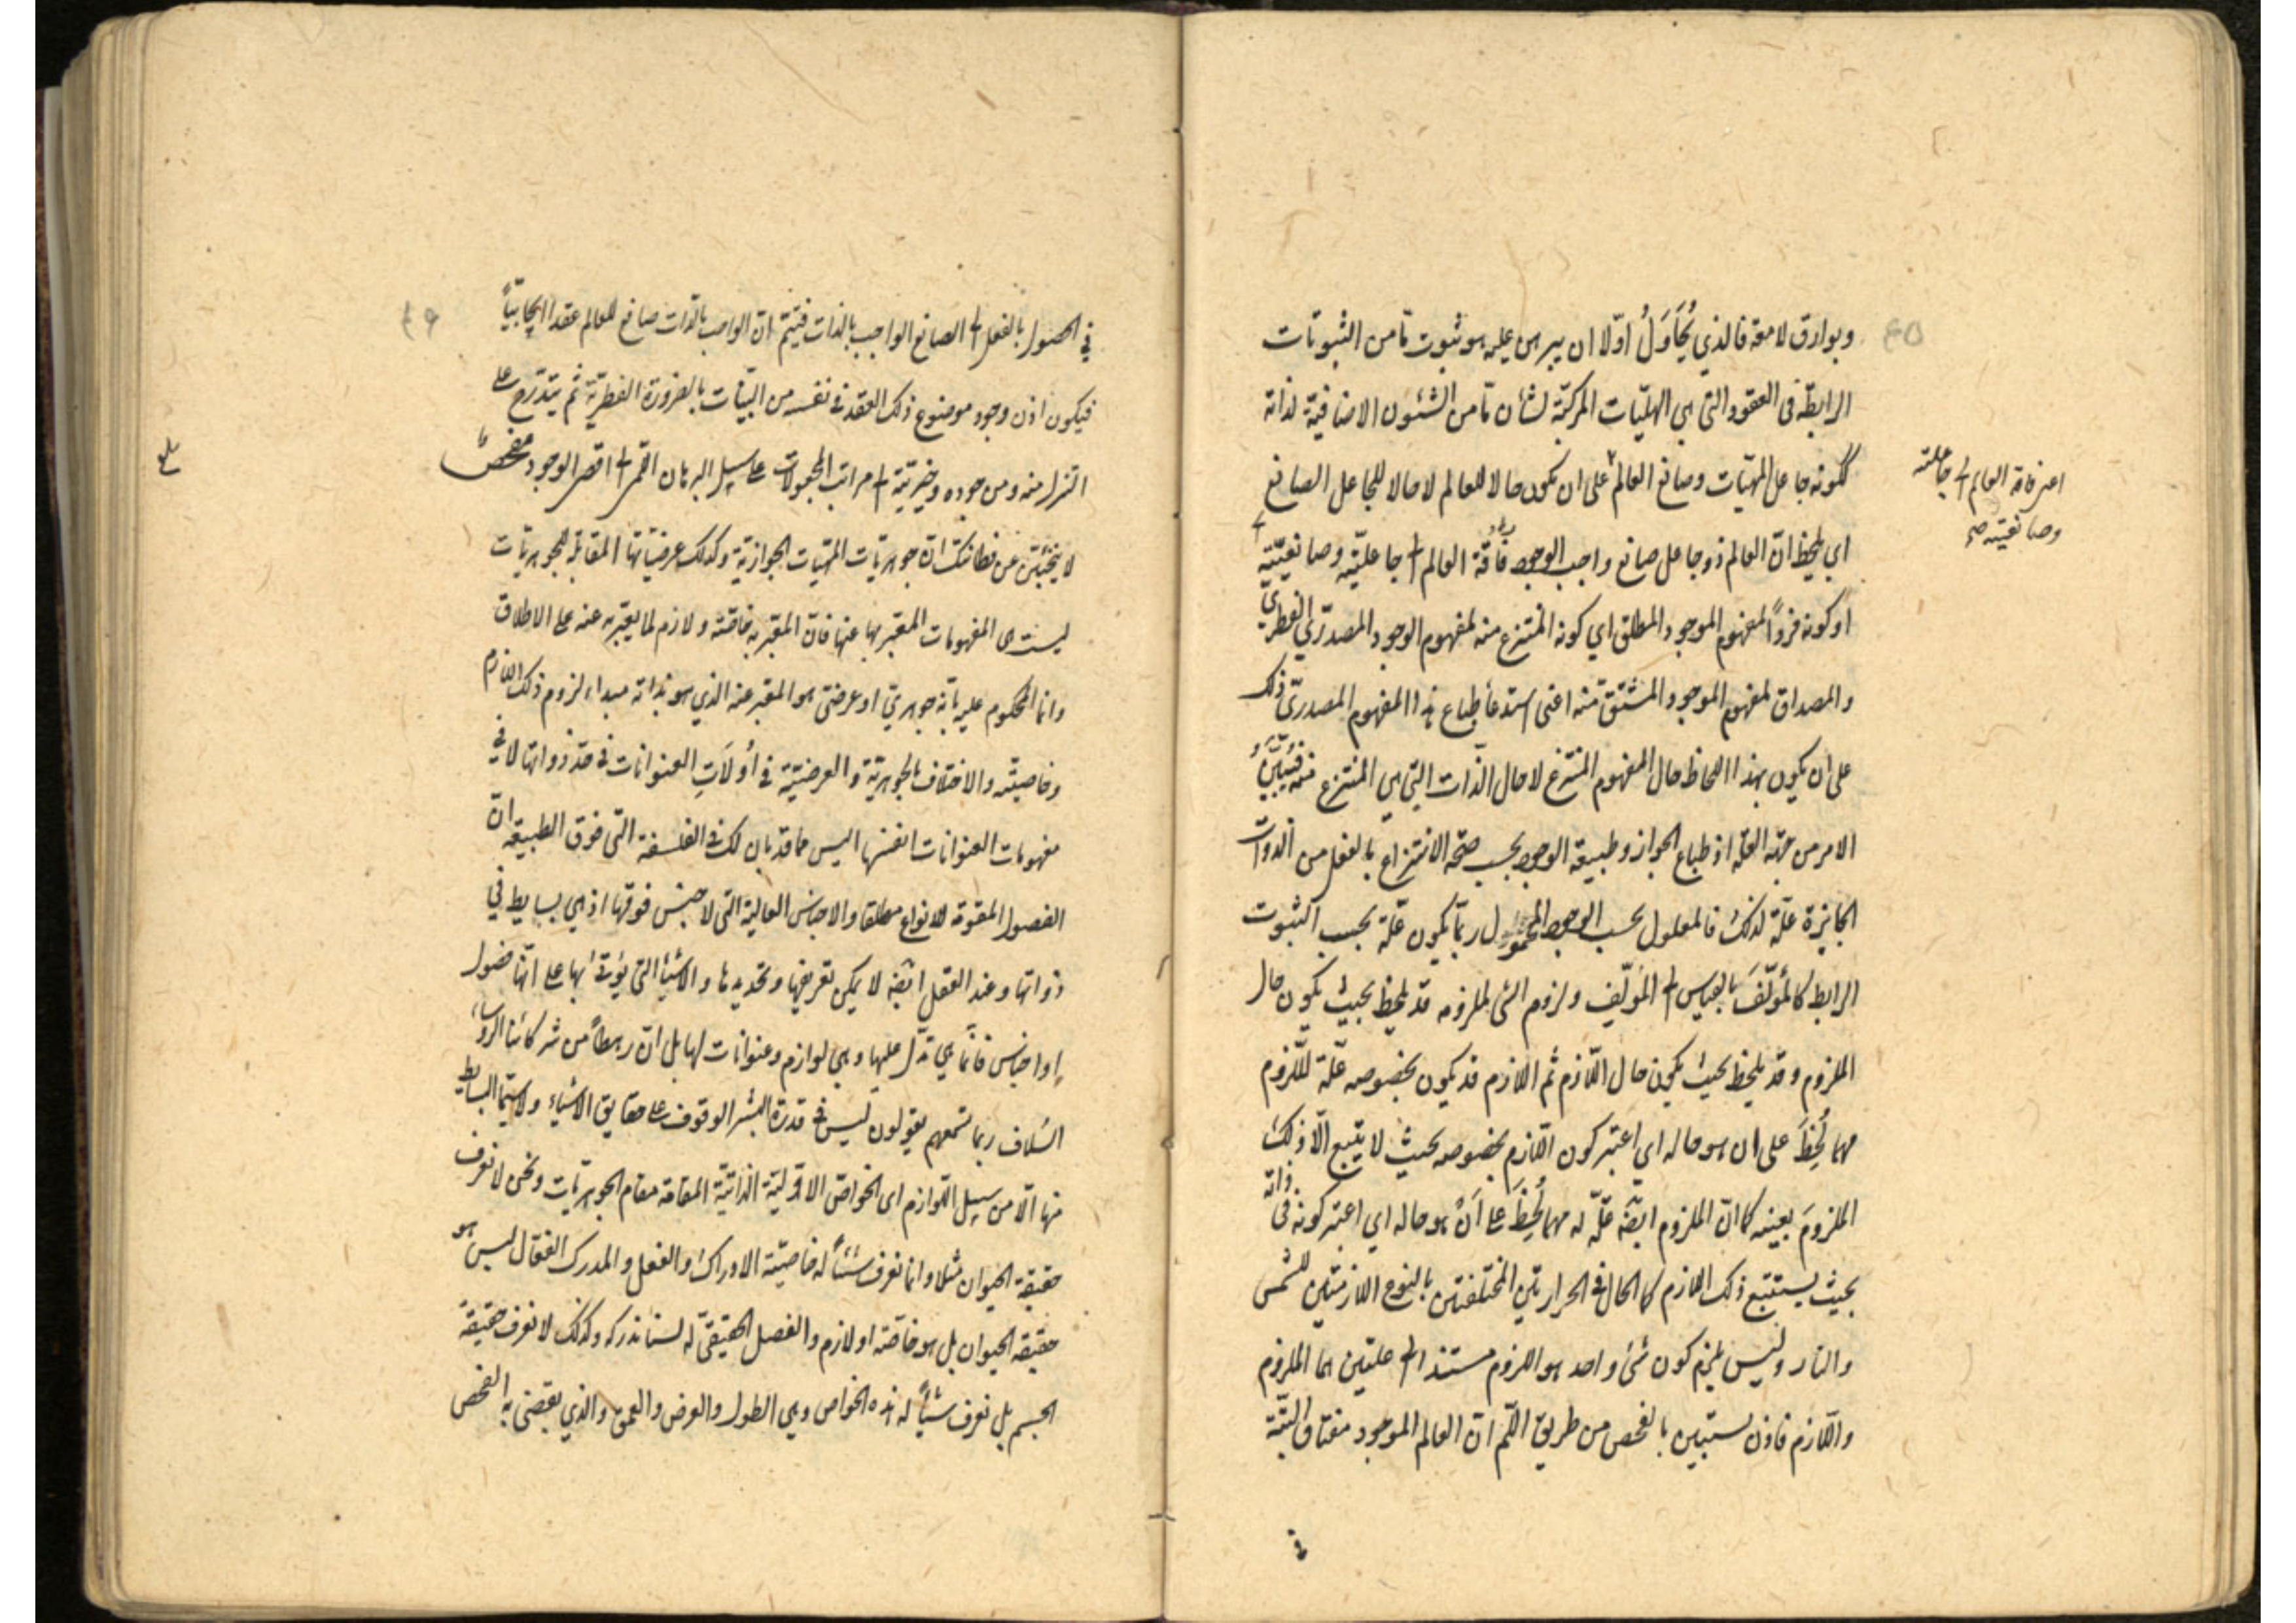 وبوارق لامعة فالذي يُحاوَلُ اوّلا ان يبرهن عليه هو ثبوت مّا من الثبوتات
الرابطة فى العقود التى هى الهليّات المركبّة لشأن مّا من الشئون الاضافية لذاته
ككونه جاعل المهيّات وصانع العالم على ان يكون حالا للعالم لا حالا للجاعل الصانع
اعنى فاقة العالم الى جاعليته
وصانعيته صح
اي يلحظ انّ العالم ذو جاعل صانع واجب الوجود فاقة العالم الى جاعليّته وصانعيّته
او كونه فردًا لمفهوم الموجود المطلق اي كونه المنتزع منه لمفهوم الوجود المصدرّي الفطري
والمصداق لمفهوم الموجود المشتق منه اعنى استدعأ طباع هذا المفهوم المصدريّ ذلك
على ان يكون بهذا اللحاظ حال المفهوم المنتزع لا حال الذّات التى هى المنتزع منه فيتبيّن
الامر من جهة العلّة اذ طباع الجواز وطبيعة الوجود بحسب صحّة الانتزاع بالفعل من الذوات
الجايزة علّة لذلك فالمعلول بحسب الوجود المحمول ربّما يكون علّة بحسب الثبوت
الرابط كالمؤلَّف بالقياس الى المؤلِّف ولزوم الشى لملزومه قد يلحظ بحيث يكون حال
الملزوم وقد يلحظ بحيث يكون حال اللّازم ثم اللازم قد يكون بخصوصه علّة للّزوم
مهما لُحِظَ على ان هو حاله اي اعتبر كون اللّازم بخصوصه بحيث لا يتبع الّا ذلك
الملزومَ بعينه كما انّ الملزوم ايضّه علّة له مهما لُحِظَ على اَنْ هو حاله اي اعتبر كونه فى ذاته
بحيث يستتبع ذلك اللازم كما الحال فى الحرارتين المختلفتين بالنوع اللازمتين للشمس
والنار وليس يلزم كون شئ واحد هو اللزوم مستندا الى علّتين هما الملزوم
واللّازم فاذن يستبين بالفحص من طريق اللّم انّ العالم الموجود مفتاق البتّة
فى
في الحصول بالفعل الى الصانع الواجب بالذات فيتم انّ الواجب بالذّات صانع للعالم عقدا ايجابيّاً
فيكون اذن وجود موضوع ذلك العقد فى نفسه من البيّنات بالضرورة الفطريّة ثم يتدرّج على
التنزل منه ومن جوده وخيريّته الى مراتب المجعولات على سبيل البرهان اللمى الى اقصى الوجود فحص
لا يختبئن عن فطانتك انّ جوهريّات المهيّات الجوازيّة وكذلك عرضيّاتها المقابلة للجوهريّات
ليست هى المفهومات المعبّر بها عنها فانّ المعبّر به خاصّته ولازم لما يعبّر به عنه على الاطلاق
وانما المحكوم عليه بانّه جوهريّ او عرضىّ هو المعبّر عنه الذي هو بذاته مبداء لزوم ذلك اللازم
وخاصيته والاختلاف بالجوهريّة والعرضيّة في اُولَاتِ العنوانات فى حدّ ذواتها لا في
مفهومات العنوانات انفسها اليس مما قد بان لك فى الفلسفة التى فوق الطبيعه انّ
الفصول المقومة للانواع مطلقا والاجناس العالية التى لا جنس فوقها اذ هى بسايط في
ذواتها وعند العقل ايضّه لا يمكن تعريفها وتحديدها والاشيأ التى يؤتى بها على انّها فصول
او اجناس فانّما هي تدلّ عليها وهى لوازم وعنوانات لها بل انّ رهطاً من شركائنا الروساء
السّلاف ربما تسمعهم يقولون ليس فى قدرة البشر الوقوف على حقايق الاشياء ولا سيّما البسايط
منها الّا من سبيل اللّوازم اى الخواصّ الاوّليّة الذاتيّة المقامة مقام الجوهريّات ونحن لا نعرف
حقيقة الحيوان مثلا وانما نعرف شئاً له خاصيّة الادراك والفعل والمدرك الفعّال ليس هو
حقيقه الحيوان بل هو خاصّته او لازم والفصل الحقيقىّ له لسنا ندركه وكذلك لا نعرف حقيقة
الجسم بل نعرف شيئاً له هذه الخواص وهى الطول والعرض والعمق والذي يقضى به الفحص